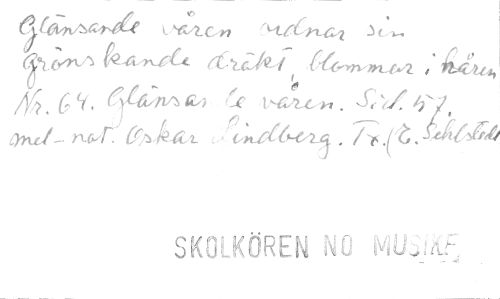 Glänsande våren ordnar sin
grönskande dräkt, blommor i håren
Nr. 64. Glänsande våren. Sid. 57.
mel-not. Oskar Lindberg. Tx. (E. Sehlstedt
SKOLKÖREN NO MUSIKF